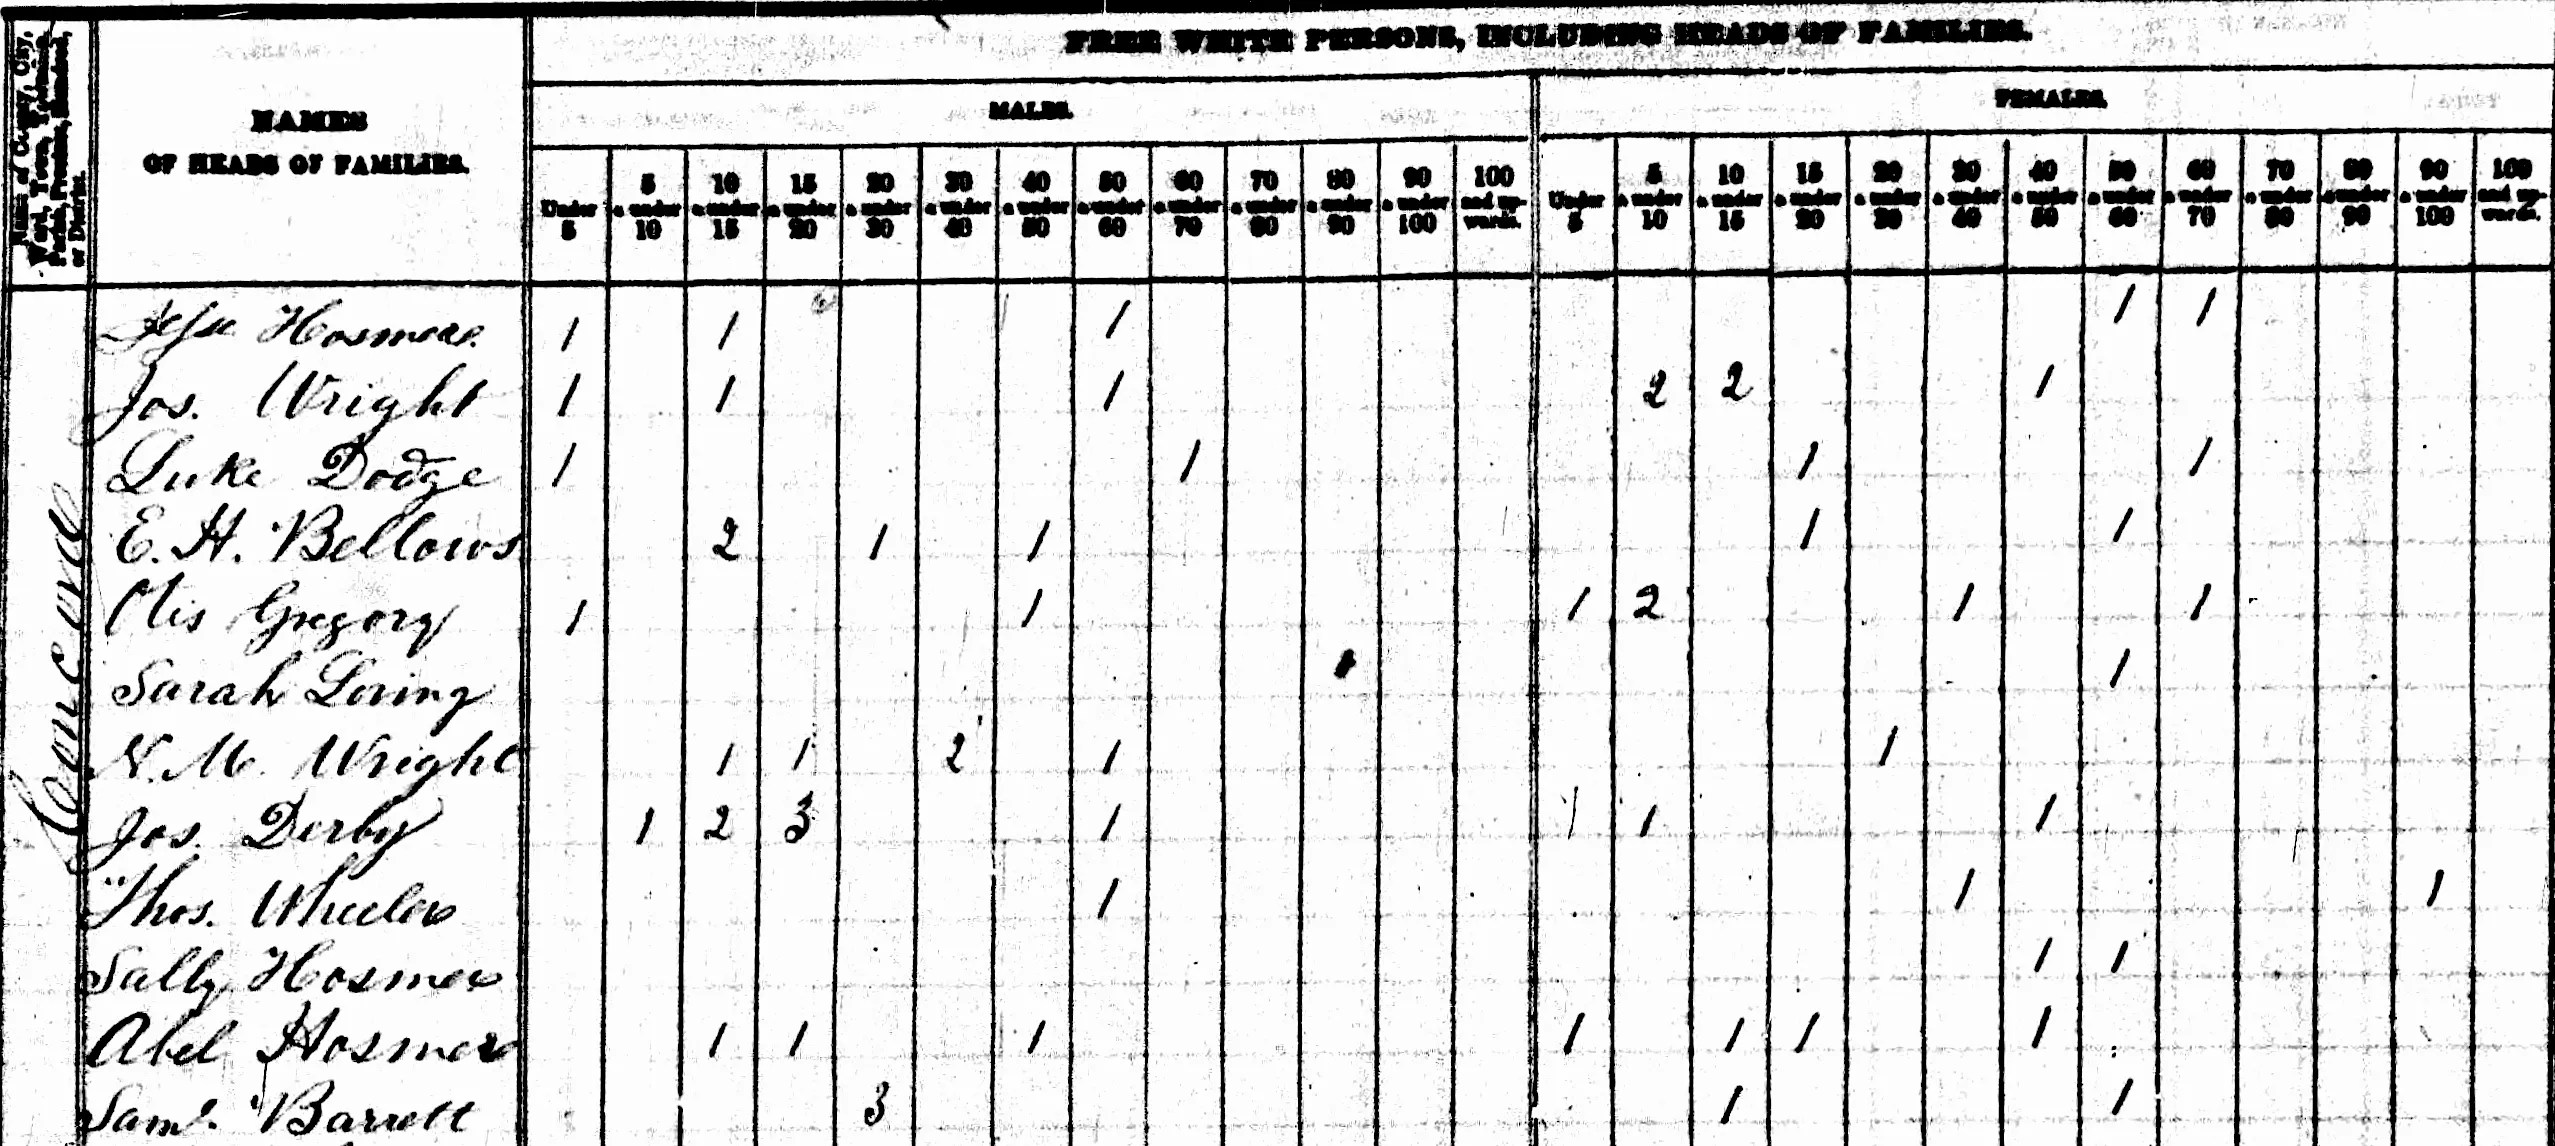 FREE WHITE PERSONS, INCLUDING HEADS OF FAMILIES.
Name of County, City, Ward, Town, Township, Parish, Precinct, Hundred, or District.
NAMES OF HEADS OF FAMILIES.
MALES. FEMALES.
Under 5 | 5 & under 10 | 10 & under 15 | 15 & under 20 | 20 & under 30 | 30 & under 40 | 40 & under 50 | 50 & under 60 | 60 & under 70 | 70 & under 80 | 80 & under 90 | 90 & under 100 | 100 and upwards. | Under 5 | 5 & under 10 | 10 & under 15 | 15 & under 20 | 20 & under 30 | 30 & under 40 | 40 & under 50 | 50 & under 60 | 60 & under 70 | 70 & under 80 | 80 & under 90 | 90 & under 100 | 100 and upwards.
Concord
Hosmer 1 1 1 1 1
Jos. Wright 1 1 1 2 2 1
Luke Dodge 1 1 1 1
E. H. Bellows 2 1 1 1 1
Otis Gregory 1 1 1 2 1 1
Sarah Loring 1
N. M. Wright 1 1 2 1 1
Jos. Derby 1 2 3 1 1 1 1
Thos. Wheeler 1 1 1
Sally Hosmer 1 1
Abel Hosmer 1 1 1 1 1 1 1
Saml. Barrett 3 1 1